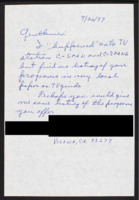 9/26/97
Gentlemen:
I "happened" onto TV
station C-SPAN and C-SPAN2
but find no listing of your
programs in my local
paper or TV guide.
Perhaps you could give
me some listing of the programs
you offer.
CA 93277